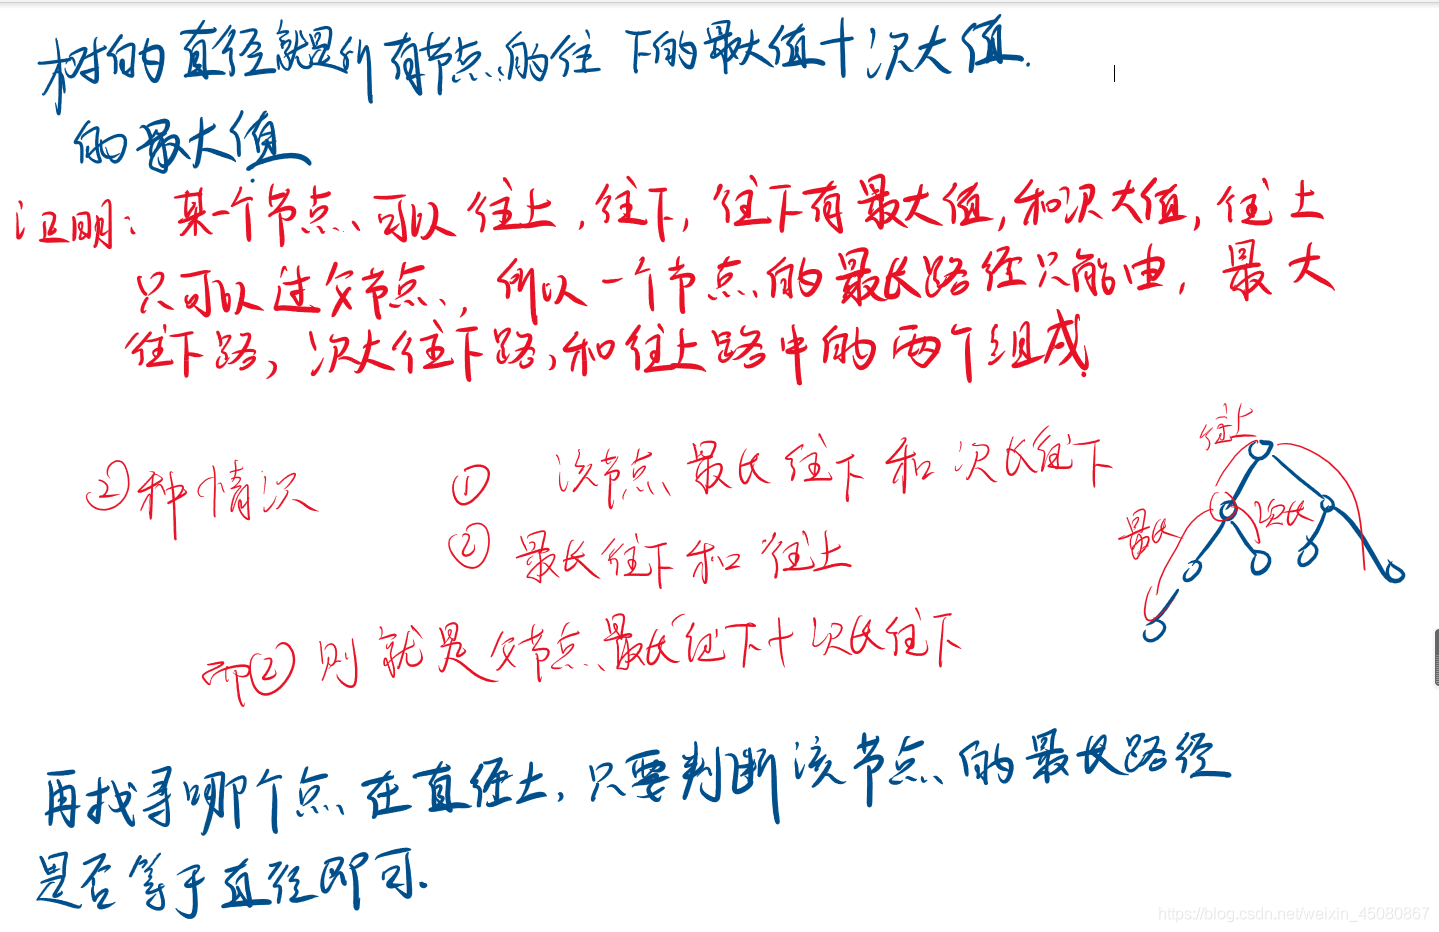 树的直径就是所有节点的往下的最大值+次大值.
的最大值
证明：某一个节点、可以往上，往下，往下有最大值，和次大值，往上
只可以过父节点、，所以一个节点的最长路径只能由，最大
往下路，次大往下路，和往上路中的两个组成.
②种情况
① 该节点最长往下和次长往下
② 最长往下和往上
而② 则就是父节点最长往下+次长往下
往上
最长
次长
再找寻哪个点在直径上，只要判断该节点的最长路径
是否等于直径即可.
https://blog.csdn.net/weixin_45080867